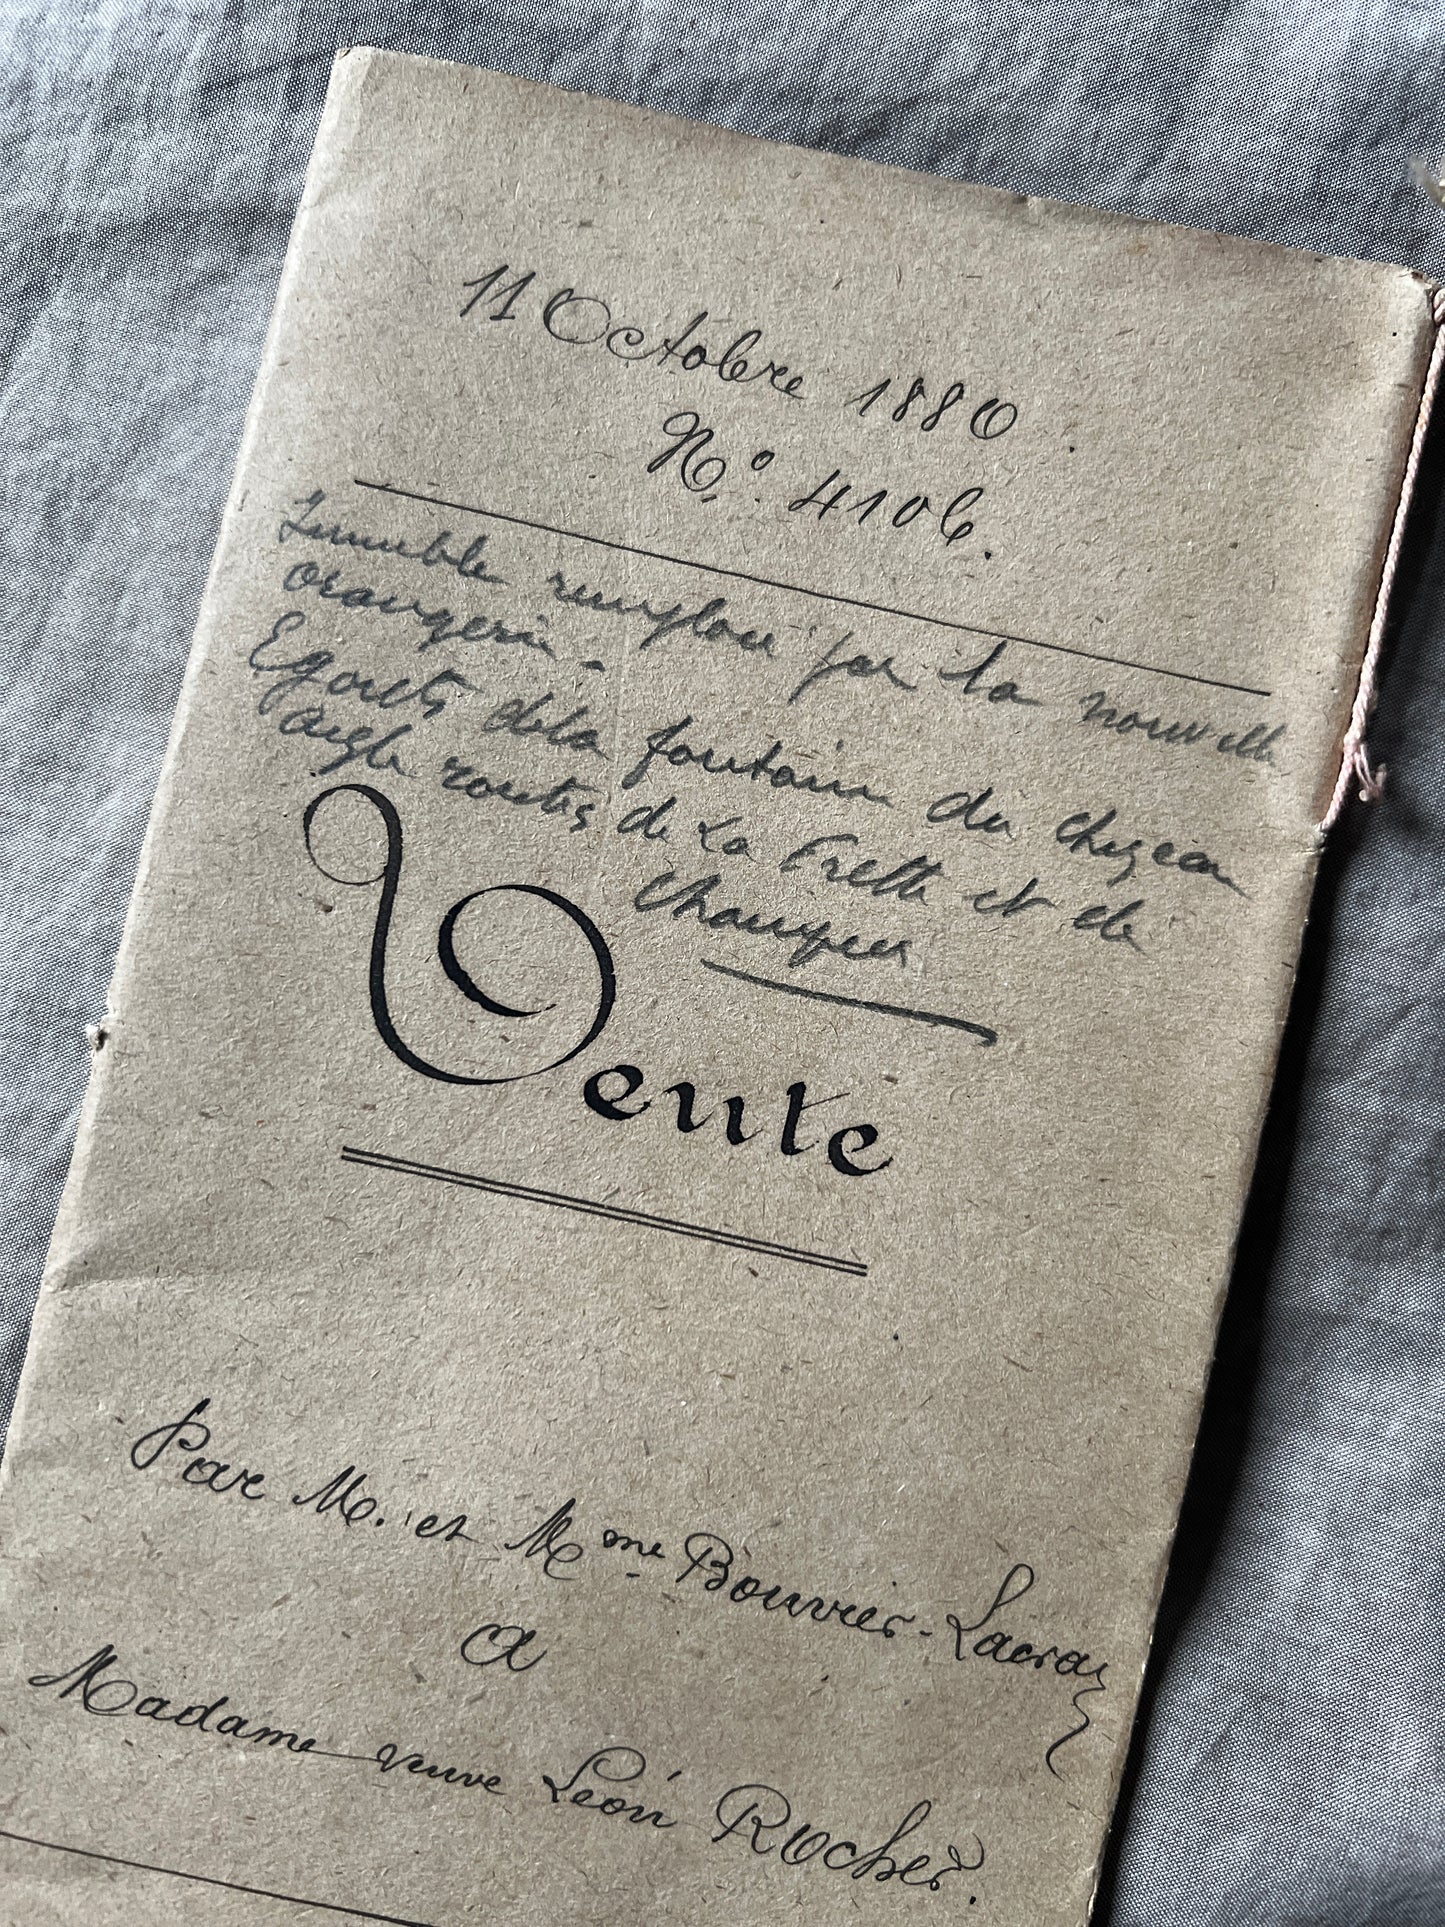 11 Octobre 1880
N.º 4106.
Immeuble remplacé par la nouvelle
orangerie.
Egouts de la fontaine du Chuzeau
Angle routes de La Frette et de
Champier
Vente
Par M. et Mme Bouvier-Lacroix
à
Madame veuve Léon Rocher.